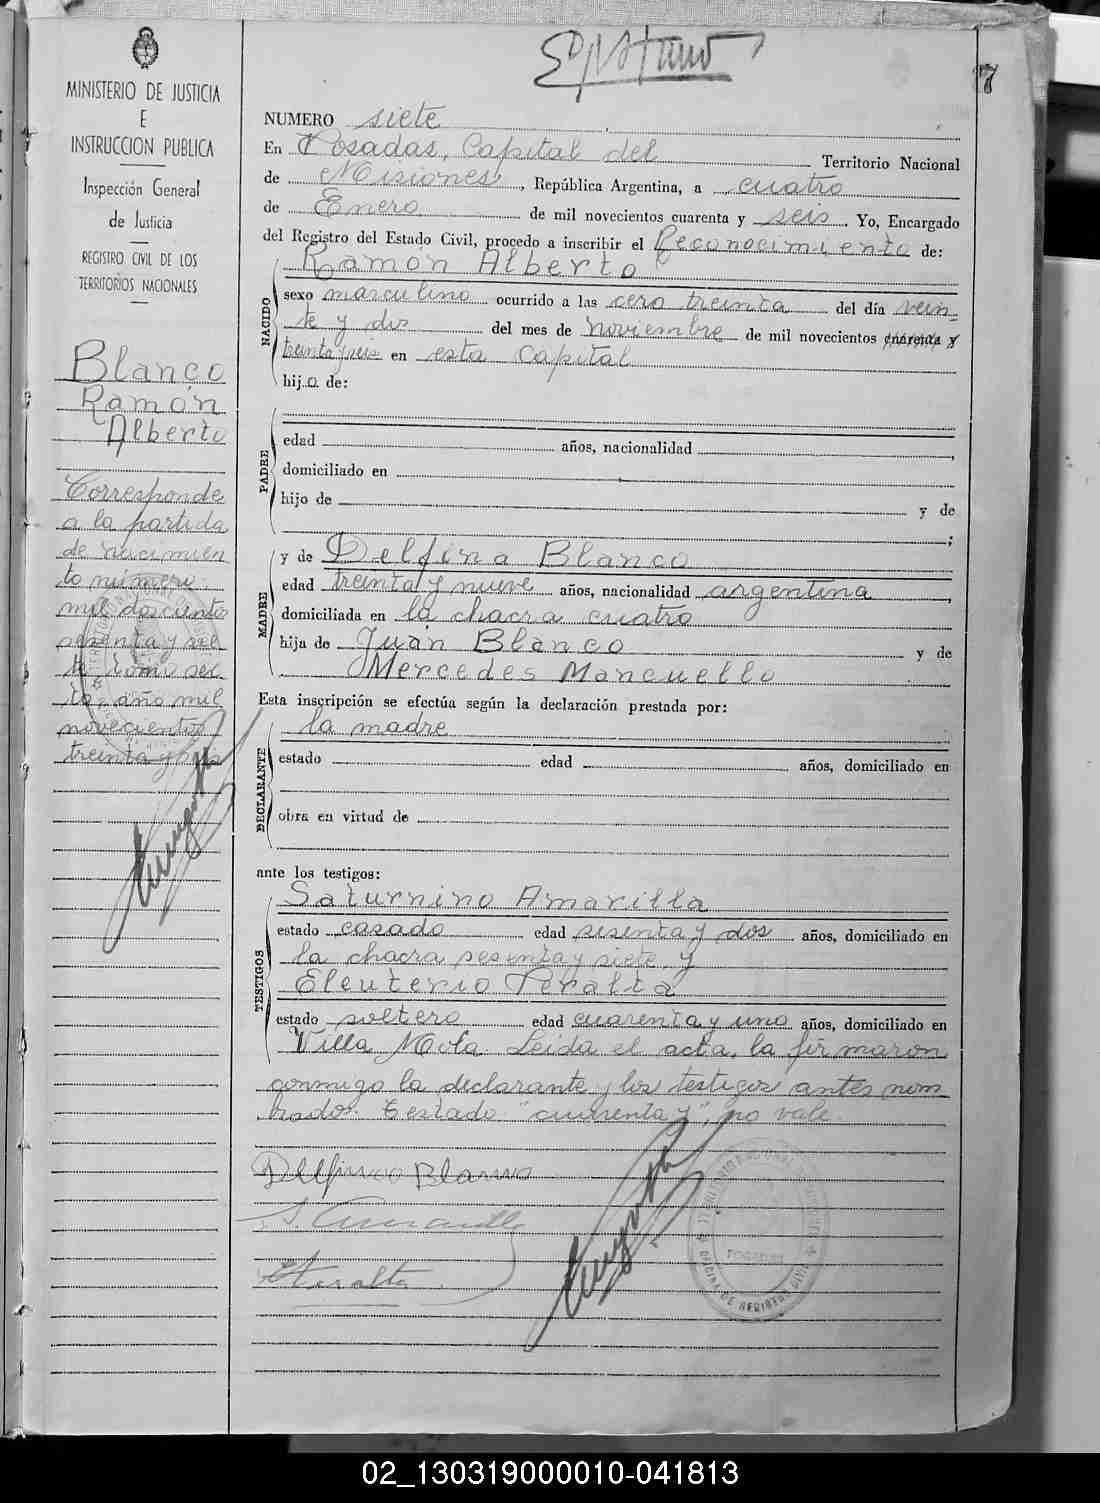 7
MINISTERIO DE JUSTICIA
E
INSTRUCCION PUBLICA
Inspección General
de Justicia
REGISTRO CIVIL DE LOS
TERRITORIOS NACIONALES
Blanco
Ramón
Alberto
Corresponde
a la partida
de nacimien
to número
mil docientos
sesenta y sei
te, tomo sec
to, año mil
novecientos
treinta y
NUMERO siete
En Posadas, Capital del Territorio Nacional
de Misiones, República Argentina, a cuatro
de Enero de mil novecientos cuarenta y seis. Yo, Encargado
del Registro del Estado Civil, procedo a inscribir el Reconocimiento de:
Ramón Alberto
NACIDO
sexo masculino ocurrido a las cero treinta del día vein-
te y dos del mes de noviembre de mil novecientos cuarenta y
treinta y seis en esta Capital
hijo de:
PADRE
edad años, nacionalidad ,
domiciliado en
hijo de y de
;
MADRE
y de Delfina Blanco
edad treinta y nueve años, nacionalidad argentina,
domiciliada en la chacra cuatro
hija de Juan Blanco y de
Mercedes Mancuello
Esta inscripción se efectúa según la declaración prestada por:
la madre
DECLARANTE
estado edad años, domiciliado en
obra en virtud de
ante los testigos:
TESTIGOS
Saturnino Amarilla
estado casado edad sesenta y dos años, domiciliado en
la chacra sesenta y siete, y
Eleuterio Peralta
estado soltero edad cuarenta y uno años, domiciliado en
Villa Mola. Leida el acta, la firmaron
conmigo la declarante y los testigos antes nom
brados. Testado "cuarenta y", no vale.
Delfina Blanco
S. Amarilla
E Peralta
POSADAS
OFICINA DE REGISTRO CIVIL
02_130319000010-041813